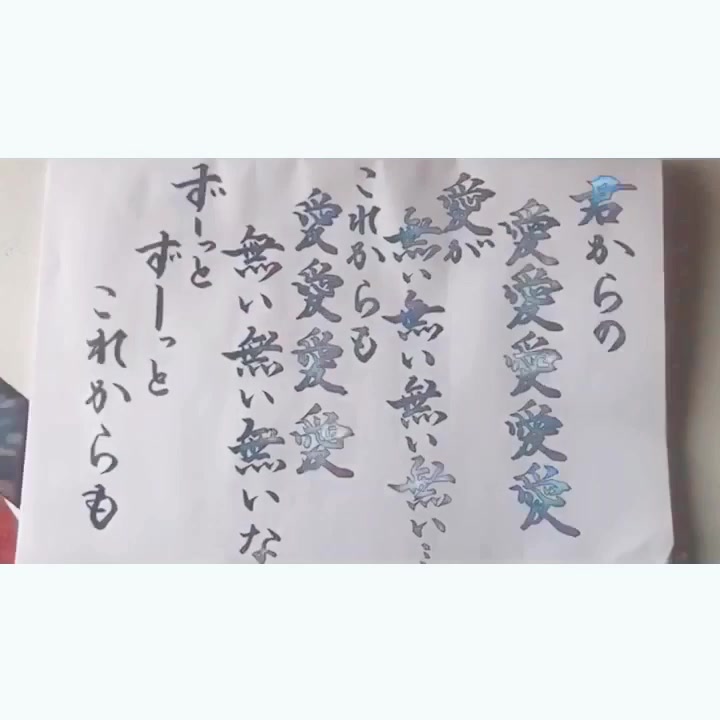 君からの
愛愛愛愛愛
愛が
無い無い無い無い…
これからも
愛愛愛愛
無い無い無いな
ずーっと
ずーっと
これからも